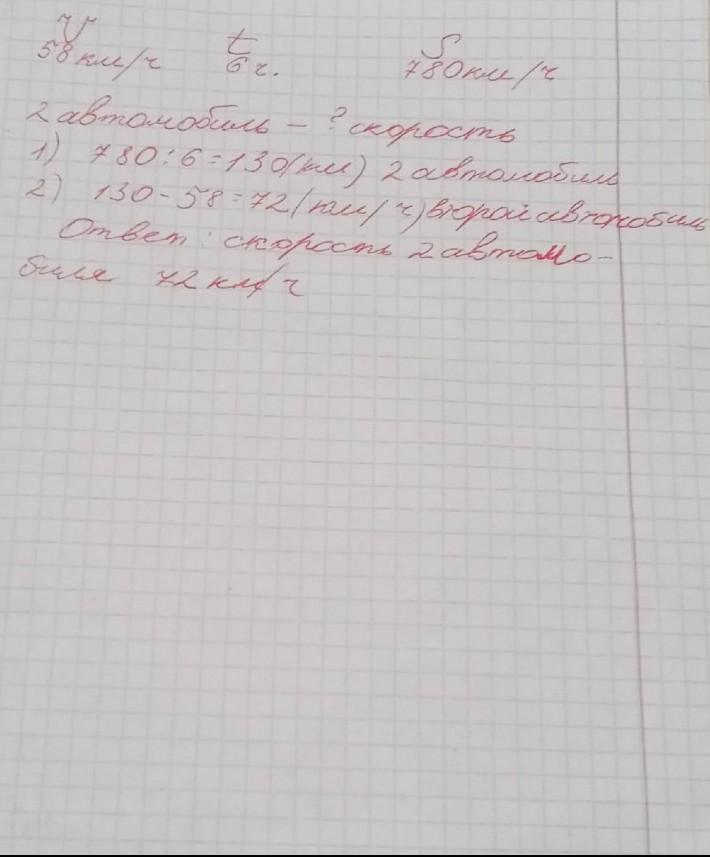 V t S
58км/ч 6ч. 780км/ч
2 автомобиль - ? скорость
1) 780:6=130(км) 2 автомобиль
2) 130-58=72(км/ч) второй автомобиль
Ответ: скорость 2 автомо-
биля 72 км/ч